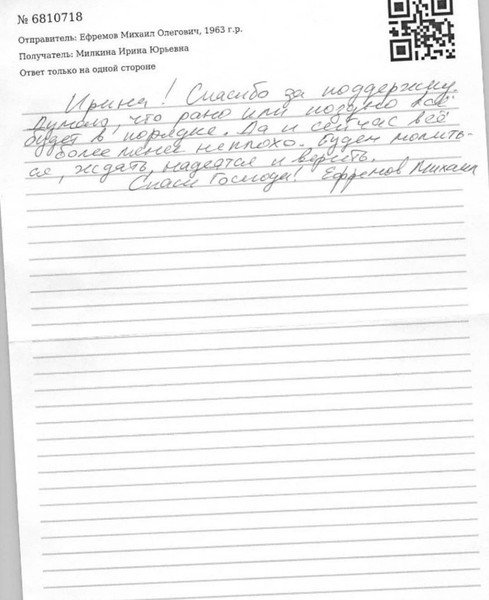 № 6810718
Отправитель: Ефремов Михаил Олегович, 1963 г.р.
Получатель: Милкина Ирина Юрьевна
Ответ только на одной стороне
Ирина! Спасибо за поддержку.
Думаю, что рано или поздно всё
будет в порядке. Да и сейчас всё
более менее неплохо. Будем молить-
ся, ждать, надеятся и верить.
Спаси Господи! Ефремов Михаил